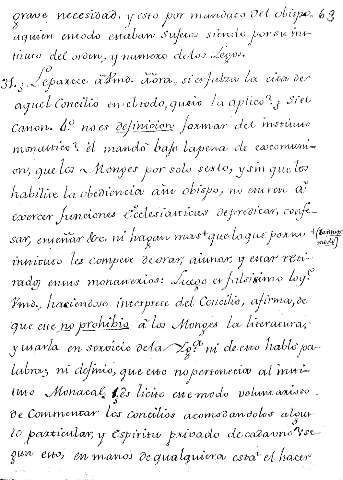 grave necesidad. y esto por mandato del obispo. 63
aquien en todo estaban sujetos siendo por su ins-
tituto del orden, y numero de los Legos.
31. ¿Leparece à Vmd. aora, si es falza la cita de
aquel Concilio en el todo, que io la aplico? ¿ si el
Canon. 4.º no es definicion formar del instituto
monastico? el mandó bajo la pena de excomuni-
on, que los Monges por solo serlo, y sin que los
habilite la obediencia a un obispo, no entren à
exercer funciones Ecclesiasticas de predicar, confe-
sar, enseñar &c. ni hagan mas que lo que por su
instituto les compete de orar, aiunar, y estar reti-
rados en sus monasterios: Luego es falsisimo lo q.e
Vmd. haciendose interprete del Concilio, afirma, de
que ese no prohibio à los Monges la literatura,
y usarla en servicio de la Yg.a ni de esto habló pa-
labra; ni definio, que esto no pertenecia al insti-
tuto Monacal. ¿Es licito ese modo voluntarioso
de Commentar los concilios acomodandolos al gus-
to particular, y Espiritu privado de cada uno? y se
gun esto, en manos de qualquiera está el hacer